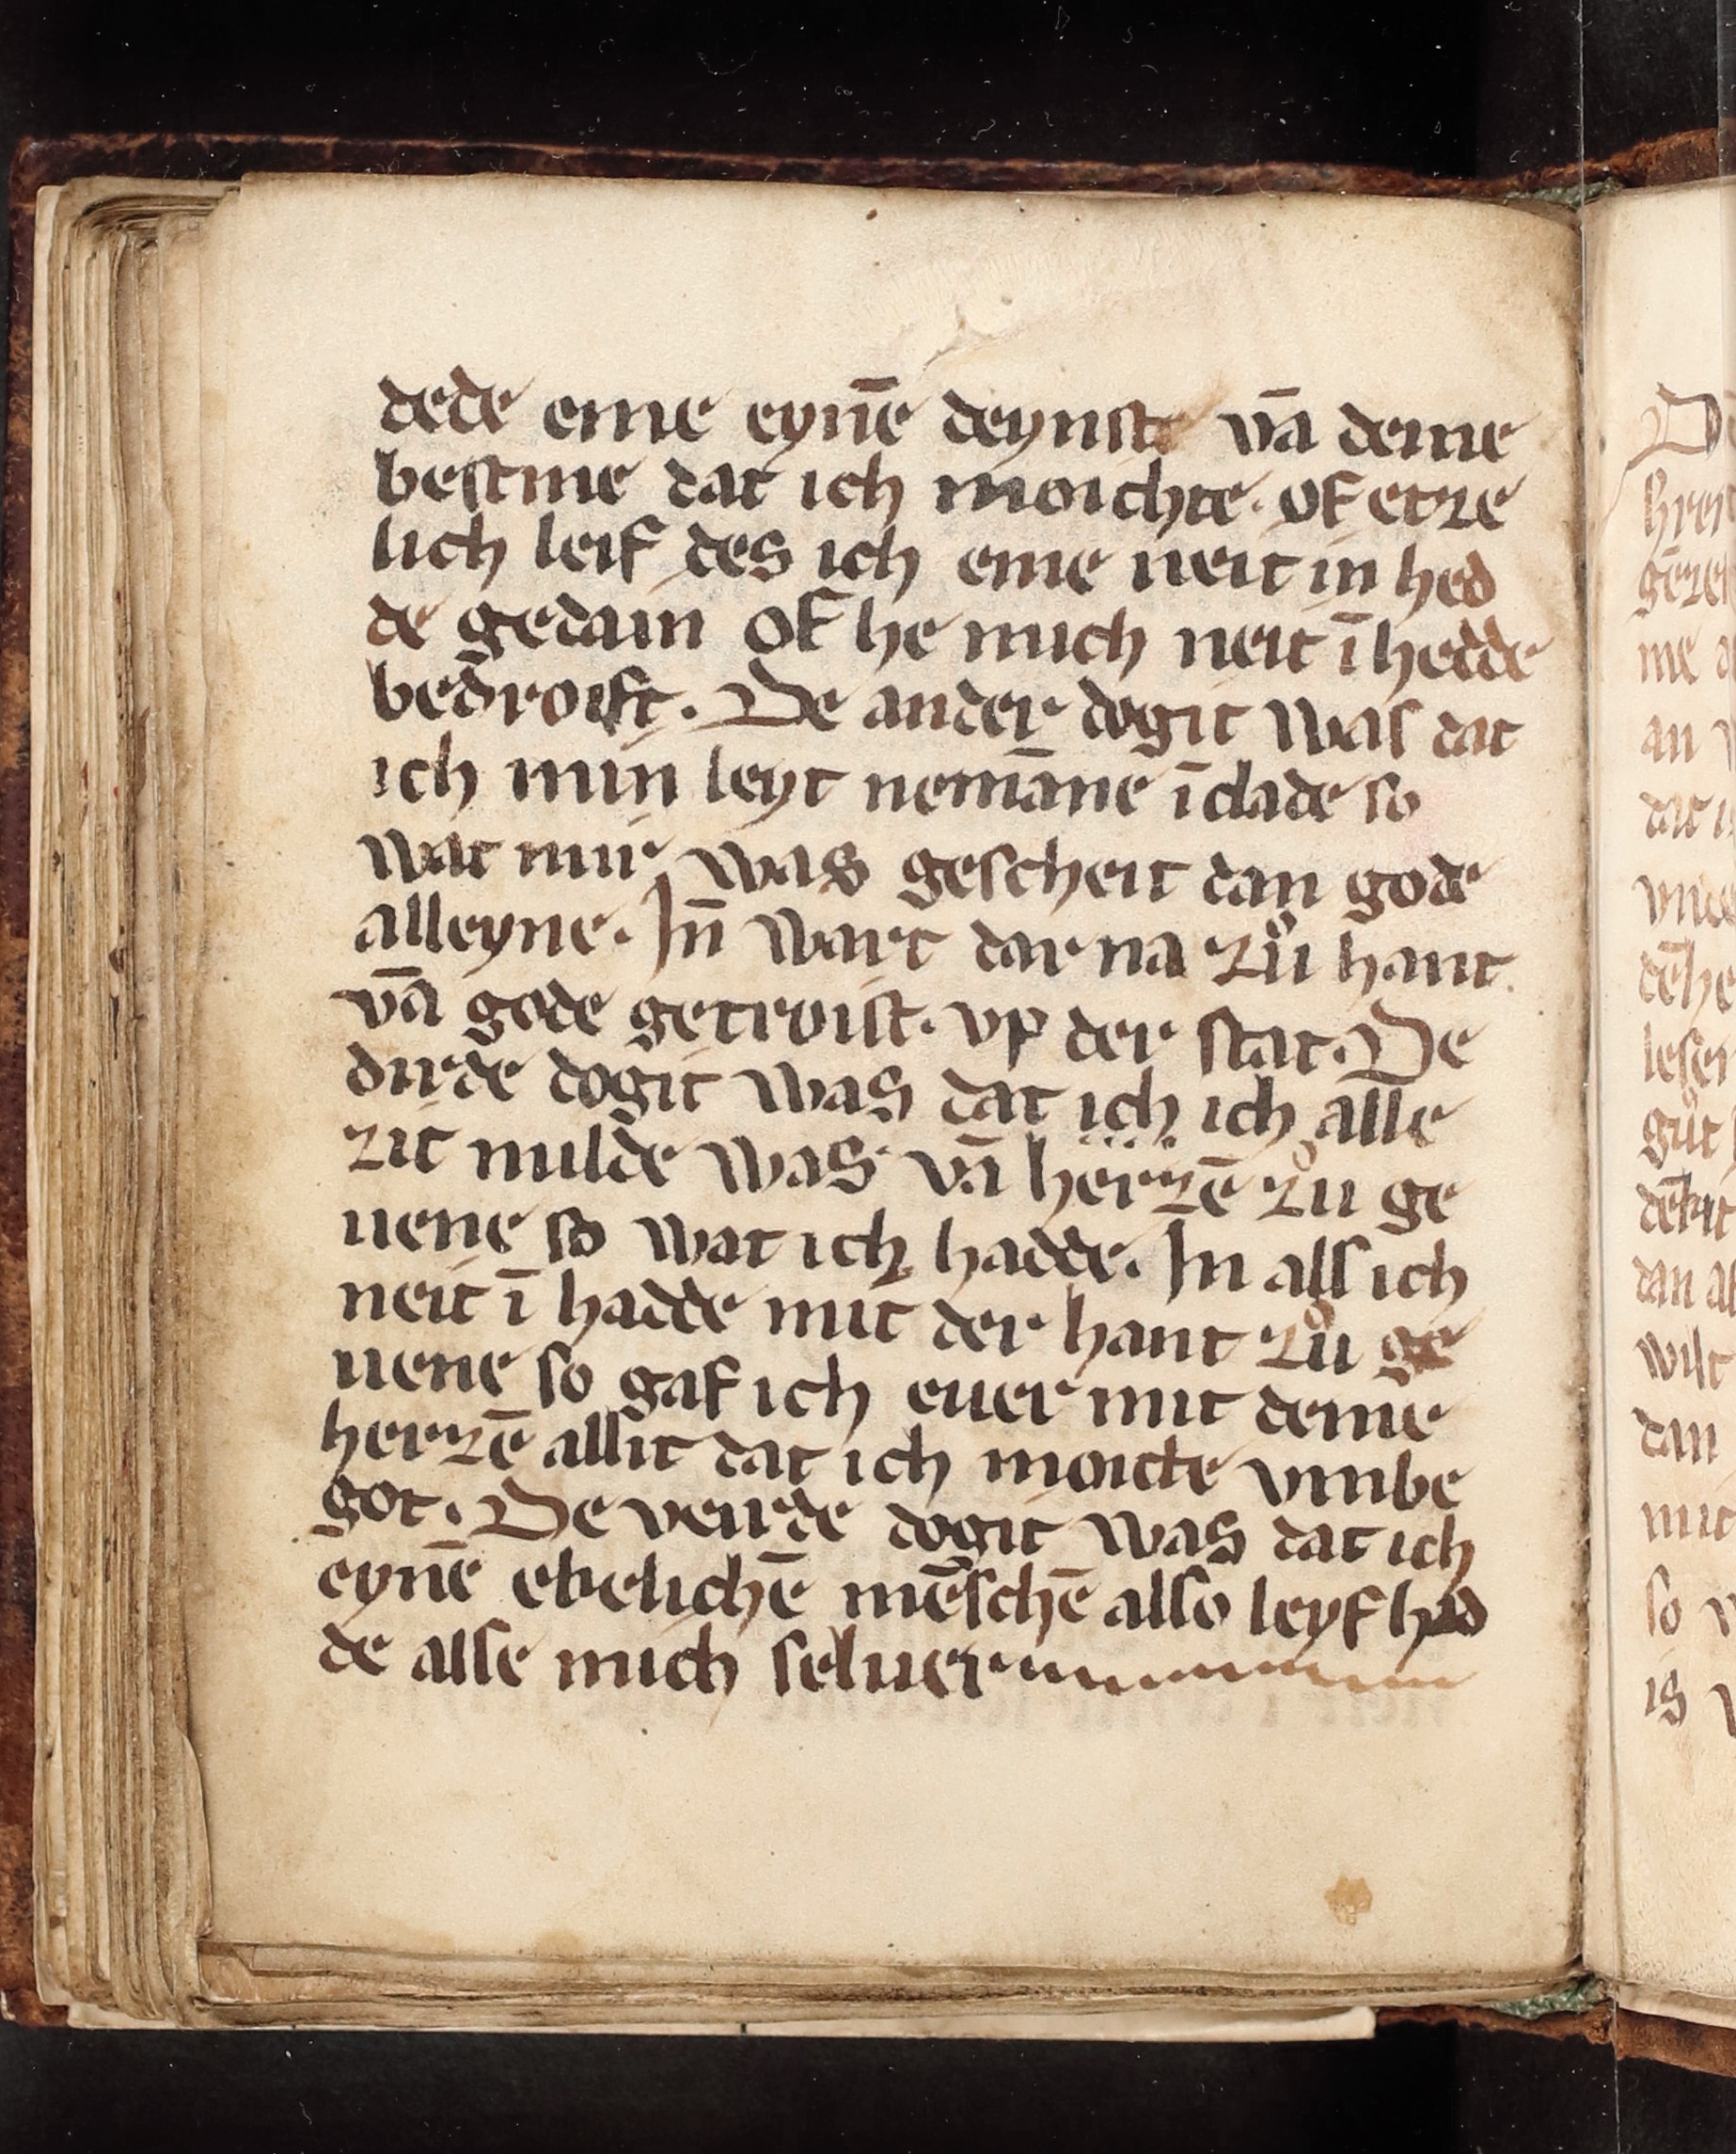 dede eme eynē deynste vā deme
bestme dat ich moichte. of etze
lich leif des ich eme neit in hed
de gedain of he mich neit ī hedde
bedroift. De ander dogit was dat
ich min leyt nemāne ī clade so
wat mir was gescheit dan gode
alleyne. In̄ wart dar na zůi hant.
vā gode getroist. vp der stat. De
dirde dogit was dat ich ich alle
zit milde was vā herzē zůi ge
uene so wat ich hadde. In als ich
neit ī hadde mit der hant zůi ge
uene so gaf ich euer mit deme
herzē allit dat ich moicte vmbe
got. De veirde dogit was dat ich
eynē ebelichē mēschē also leyf had
de alse mich seluer